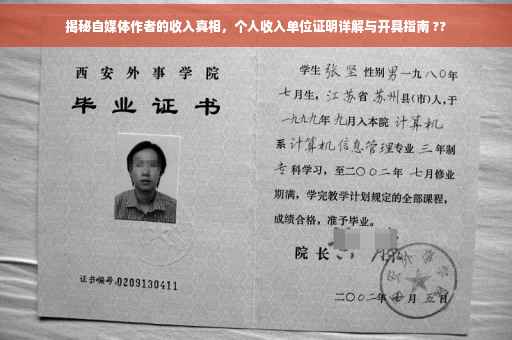 揭秘自媒体作者的收入真相，个人收入单位证明详解与开具指南??
西安外事学院
毕业证书
证书编号:0209130411
学生张坚性别男一九八〇年
七月生，江苏省苏州县(市)人,于
一九九九年九月入本院计算机
系计算机信息管理专业三年制
专科学习，至二〇〇二年七月修业
期满，学完教学计划规定的全部课程，
成绩合格，准予毕业。
院长
二〇〇二年 月五日